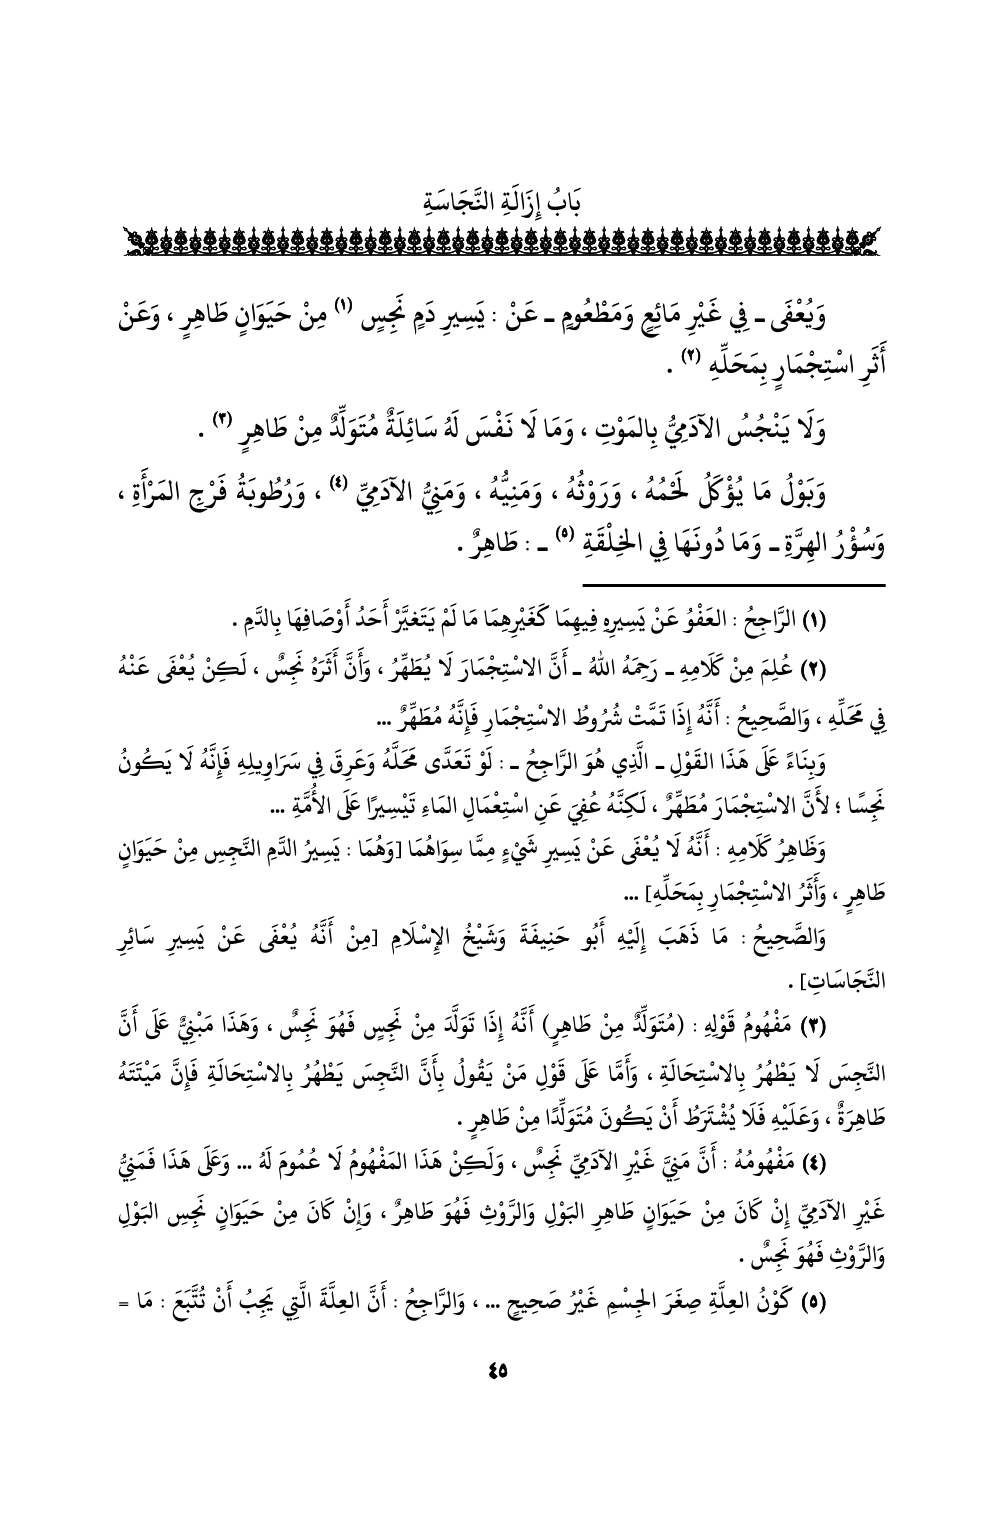 بَابُ إِزَالَةِ النَّجَاسَةِ
وَيُعْفَى ـ فِي غَيْرِ مَائِعٍ وَمَطْعُومٍ ـ عَنْ : يَسِيرِ دَمٍ نَجِسٍ (١) مِنْ حَيَوَانٍ طَاهِرٍ ، وَعَنْ
أَثَرِ اسْتِجْمَارٍ بِمَحَلِّهِ (٢) .
وَلَا يَنْجُسُ الآدَمِيُّ بِالمَوْتِ ، وَمَا لَا نَفْسَ لَهُ سَائِلَةٌ مُتَوَلِّدٌ مِنْ طَاهِرٍ (٣) .
وَبَوْلُ مَا يُؤْكَلُ لَحْمُهُ ، وَرَوْثُهُ ، وَمَنِيُّهُ ، وَمَنِيُّ الآدَمِيِّ (٤) ، وَرُطُوبَةُ فَرْجِ المَرْأَةِ ،
وَسُؤْرُ الهِرَّةِ ـ وَمَا دُونَهَا فِي الخِلْقَةِ (٥) ـ : طَاهِرٌ .
(١) الرَّاجِحُ : العَفْوُ عَنْ يَسِيرِهِ فِيهِمَا كَغَيْرِهِمَا مَا لَمْ يَتَغيَّرْ أَحَدُ أَوْصَافِهَا بِالدَّمِ .
(٢) عُلِمَ مِنْ كَلَامِهِ ـ رَحِمَهُ اللهُ ـ أَنَّ الاسْتِجْمَارَ لَا يُطَهِّرُ ، وَأَنَّ أَثَرَهُ نَجِسٌ ، لَكِنْ يُعْفَى عَنْهُ
فِي مَحَلِّهِ ، وَالصَّحِيحُ : أَنَّهُ إِذَا تَمَّتْ شُرُوطُ الاسْتِجْمَارِ فَإِنَّهُ مُطَهِّرٌ ...
وَبِنَاءً عَلَى هَذَا القَوْلِ ـ الَّذِي هُوَ الرَّاجِحُ ـ : لَوْ تَعَدَّى مَحَلَّهُ وَعَرِقَ فِي سَرَاوِيلِهِ فَإِنَّهُ لَا يَكُونُ
نَجِسًا ؛ لأَنَّ الاسْتِجْمَارَ مُطَهِّرٌ ، لَكِنَّهُ عُفِيَ عَنِ اسْتِعْمَالِ المَاءِ تَيْسِيرًا عَلَى الأُمَّةِ ...
وَظَاهِرُ كَلَامِهِ : أَنَّهُ لَا يُعْفَى عَنْ يَسِيرِ شَيْءٍ مِمَّا سِوَاهُمَا [وَهُمَا : يَسِيرُ الدَّمِ النَّجِسِ مِنْ حَيَوَانٍ
طَاهِرٍ ، وَأَثَرُ الاسْتِجْمَارِ بِمَحَلِّهِ] ...
وَالصَّحِيحُ : مَا ذَهَبَ إِلَيْهِ أَبُو حَنِيفَةَ وَشَيْخُ الإِسْلَامِ [مِنْ أَنَّهُ يُعْفَى عَنْ يَسِيرِ سَائِرِ
النَّجَاسَاتِ] .
(٣) مَفْهُومُ قَوْلِهِ : (مُتَوَلِّدٌ مِنْ طَاهِرٍ) أَنَّهُ إِذَا تَوَلَّدَ مِنْ نَجِسٍ فَهُوَ نَجِسٌ ، وَهَذَا مَبْنِيٌّ عَلَى أَنَّ
النَّجِسَ لَا يَطْهُرُ بِالاسْتِحَالَةِ ، وَأَمَّا عَلَى قَوْلِ مَنْ يَقُولُ بِأَنَّ النَّجِسَ يَطْهُرُ بِالاسْتِحَالَةِ فَإِنَّ مَيْتَتَهُ
طَاهِرَةٌ ، وَعَلَيْهِ فَلَا يُشْتَرَطُ أَنْ يَكُونَ مُتَوَلِّدًا مِنْ طَاهِرٍ .
(٤) مَفْهُومُهُ : أَنَّ مَنِيَّ غَيْرِ الآدَمِيِّ نَجِسٌ ، وَلَكِنْ هَذَا المَفْهُومُ لَا عُمُومَ لَهُ ... وَعَلَى هَذَا فَمَنِيُّ
غَيْرِ الآدَمِيِّ إِنْ كَانَ مِنْ حَيَوَانٍ طَاهِرِ البَوْلِ وَالرَّوْثِ فَهُوَ طَاهِرٌ ، وَإِنْ كَانَ مِنْ حَيَوَانٍ نَجِسِ البَوْلِ
وَالرَّوْثِ فَهُوَ نَجِسٌ .
(٥) كَوْنُ العِلَّةِ صِغَرَ الجِسْمِ غَيْرُ صَحِيحٍ ... ، وَالرَّاجِحُ : أَنَّ العِلَّةَ الَّتِي يَجِبُ أَنْ تُتَّبَعَ : مَا =
٤٥